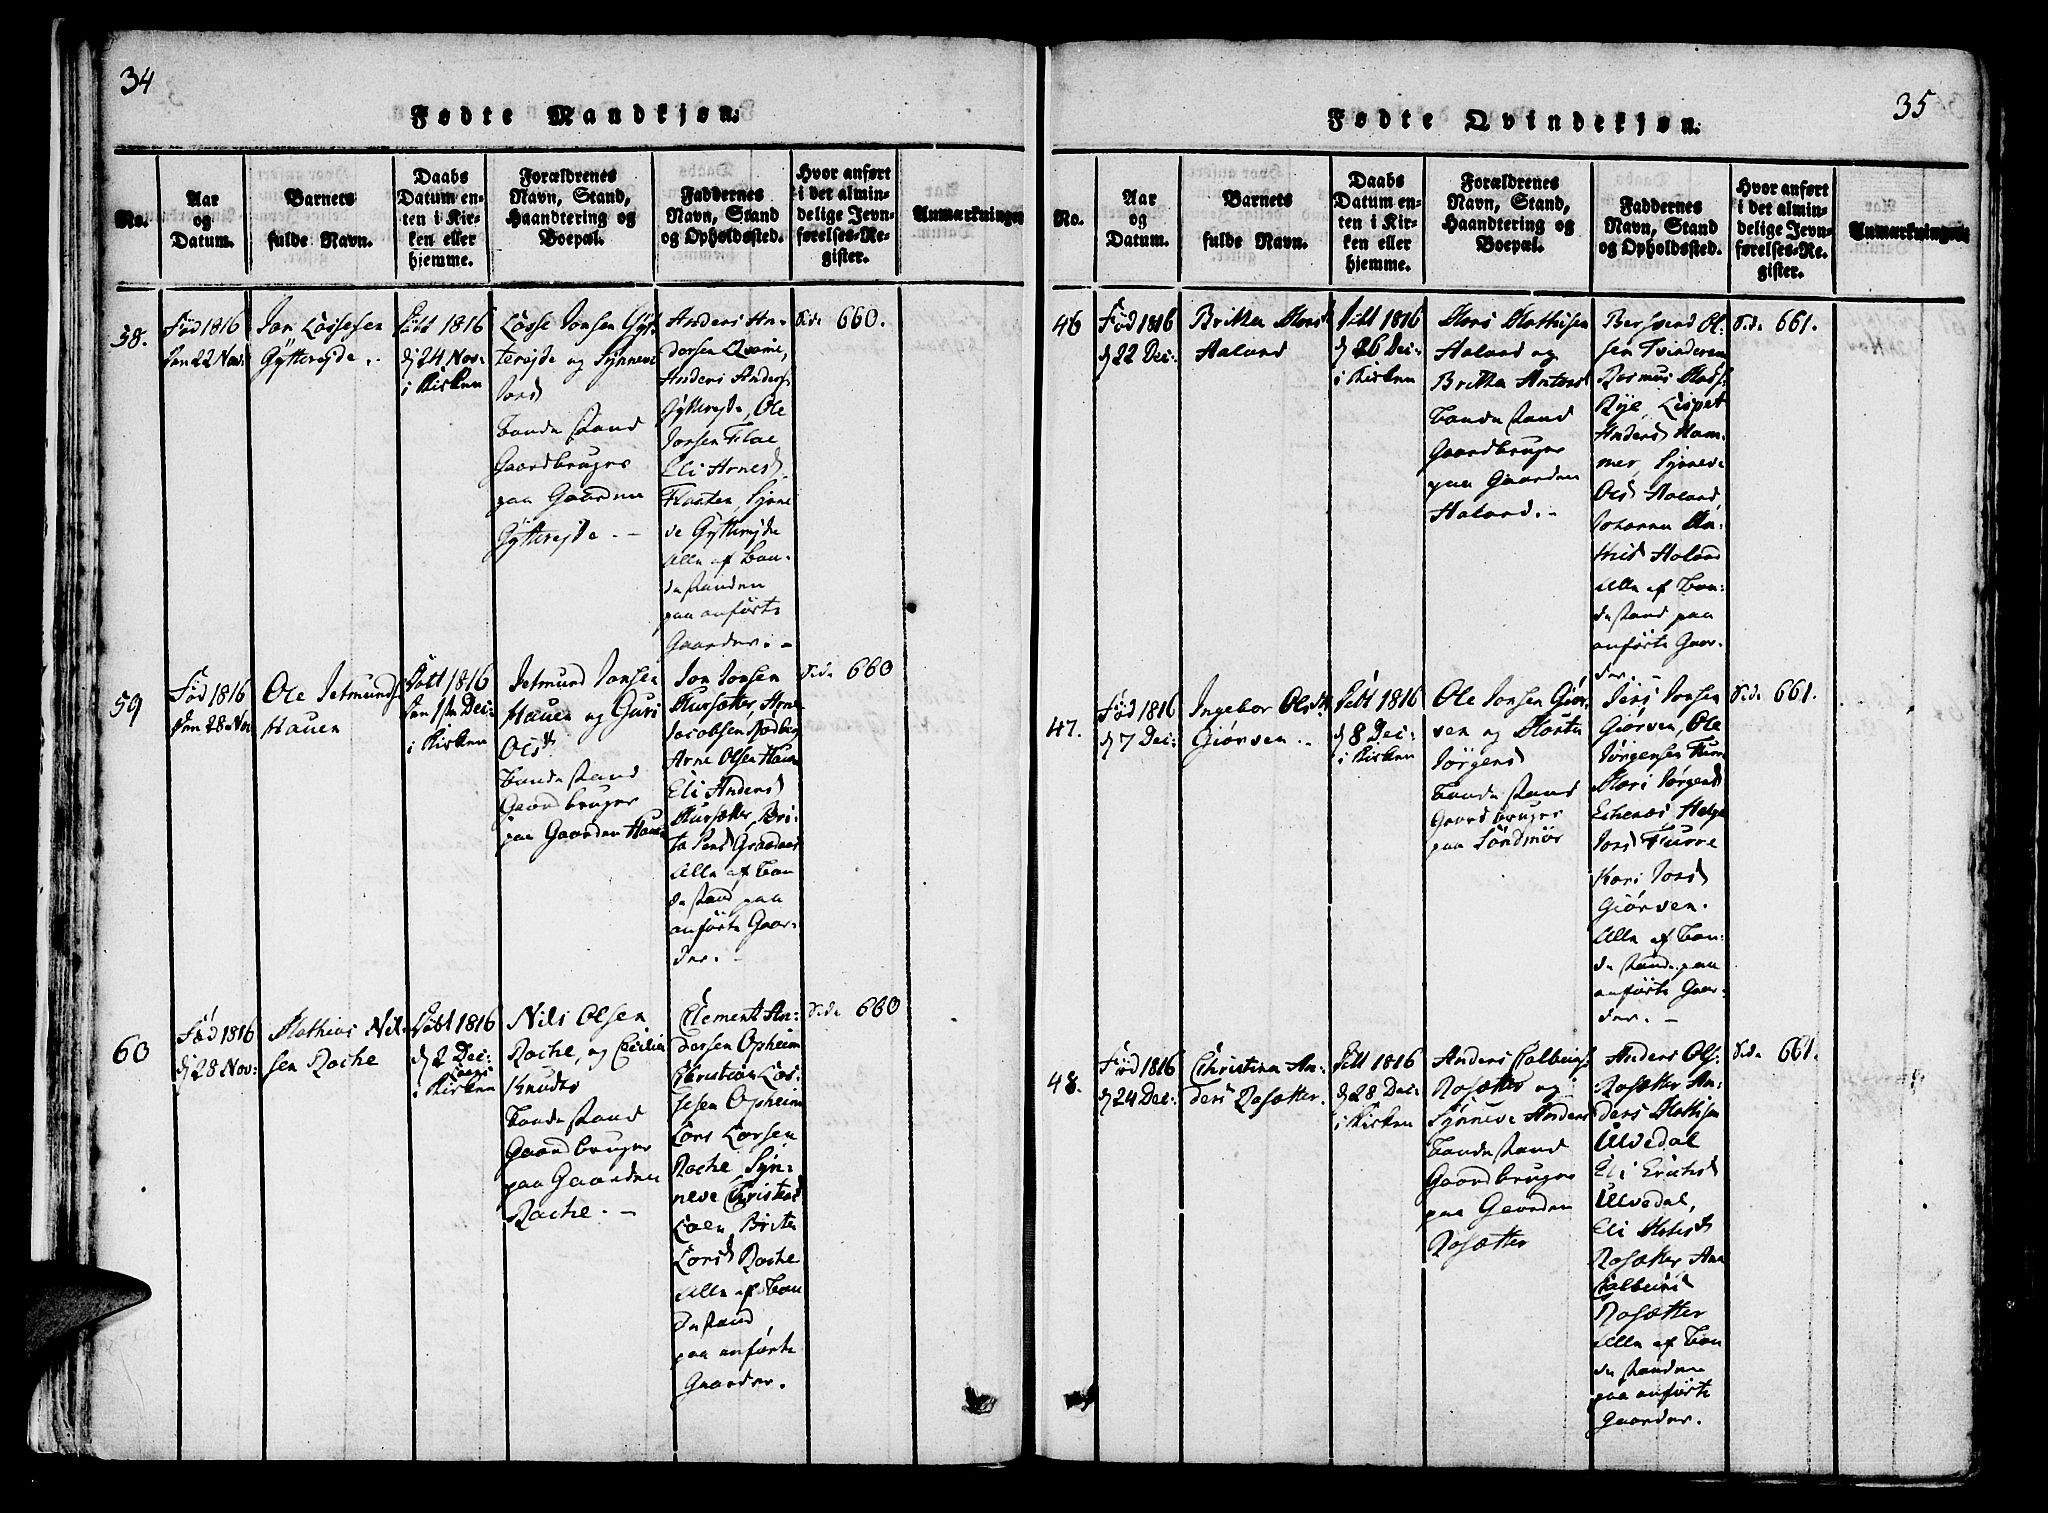 34
Fødte Mandkjøn.
No.
Aar
og
Datum.
Barnets
fulde Navn.
Daabs
Datum en-
ten i Kir-
ken eller
hjemme.
Forældrenes
Navn, Stand,
Haandtering og
Boepæl.
Faddernes
Navn, Stand
og Opholdssted.
Hvor anført
i det almin-
delige Jevn-
førelses-Re-
gister.
Anmærkninger
58.
Fød 1816
den 22 Nov:
Jon Lassesen
Gÿtterejde.
Døbt 1816
d 24 Nov:
i Kirken
Lasse Jonsen Gÿt-
terejde og Sÿnneve
Jonsd
Bondestand
Gaardbruger
paa Gaarden
Gÿtterejde. -
Anders An-
dersen Qvame,
Anders Anders.
Gÿtterejde, Ole
Flaten, Sÿnne
ve Gÿtterejde
Alle af Bon-
destanden
paa anførte
Gaarder. -
Side 660.
59
Fød 1816
den 28 Nov
Ole Jetmunds.
Hauen
Døbt 1816
den 1ste Dec:
i Kirken
Jetmund Jonsen
Hauen og Guri
Olsd
Bondestand
Gaardbruger
paa Gaarden Hauen
Jon Jonsen
Arne Olsen Hauen
Eli Andersd
Alle af Bon
destand paa
anførte Gaar-
der. -
Side 660
60
Fød 1816
d 28 Nov:
Mathias Nil-
sen Rache
Døbt 1816
d 2 Dec:
i Kirken
Nils Olsen
Rache, og Cicilia
Knuds
Bondestand
Gaardbruger
paa Gaarden
Rache. -
Clement An-
dersen Opheim
Christian Las-
sesen Opheim
Lars Larsen
Rache, Sÿn-
neve Christens
Loen, Brite
Larsd Rache
Alle af Bon
destand
paa anførte
Gaarder.
Side 660
35
Fødte Qvindekjøn.
No.
Aar
og
Datum.
Barnets
fulde Navn.
Daabs
Datum en-
ten i Kir-
ken eller
hjemme.
Forældrenes
Navn, Stand,
Haandtering og
Boepæl.
Faddernes
Navn, Stand
og Opholdssted.
Hvor anført
i det almin-
delige Jevn-
førelses-Re-
gister.
Anmærkninger
46
Fød 1816
d 22 Dec:
Britha Morsd
Aaland
Døbt 1816
d 26 Dec:
i Kirken
Mons Mathisen
Aaland og
Britha Antons
Bondestand
Gaardbruger
paa Gaarden
Aaland. -
Bersvend Ol-
sen Tvinderem
Rasmus Mads.
Rÿe, Lispet
Andersd Ham-
mer, Sÿnneve
Olsd Aaland
Johanna
Aaland
Alle af Bon-
destand paa
anførte Gaar-
der. -
Side 661.
47.
Fød 1816
d 7 Dec:
Ingebor Olsd
Giørven. -
Døbt 1816
d 8 Dec:
i Kirken
Ole Jonsen Giør-
ven og Marte
Jørgens
Bondestand
Gaardbruger
paa Søndmør
Jens Jonsen
Giørven, Ole
Jørgensen Furre
Mari Jørgensd
Jonsd Furre
Kari Jonsd
Giørven.
Alle af Bon-
destand paa
anførte Gaar-
der. -
Side 661.
48.
Fød 1816
d 24 Dec:
Christina An-
ders Rosætter.
Døbt 1816
d 28 Dec:
i Kirken
Anders Colbeins.
Rosætter og
Sÿnneve Anders
Bondestand
Gaardbruger
paa Gaarden
Rosætter
Anders Ols-
Rosætter An-
ders Mathisen
Ulvedal
Eli Erichsd
Ulvedal,
Eli Matesd
Rosætter Ane
Colbeinsd
Rosætter
Alle af Bon
destanden
paa anførte
Gaarder.
Side 661.